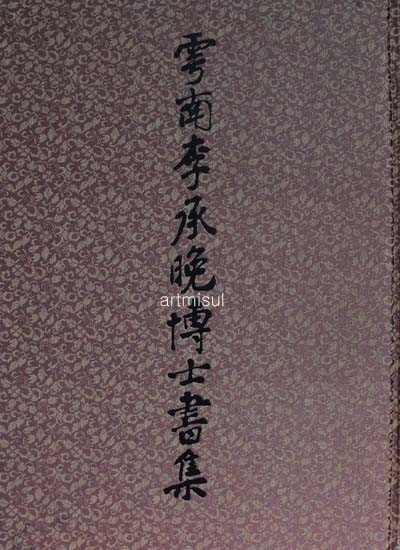 雩南李承晩博士書集
artmisul